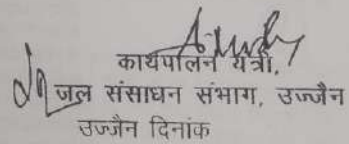 कार्यपालन यंत्री,
जल संसाधन संभाग, उज्जैन
उज्जैन दिनांक